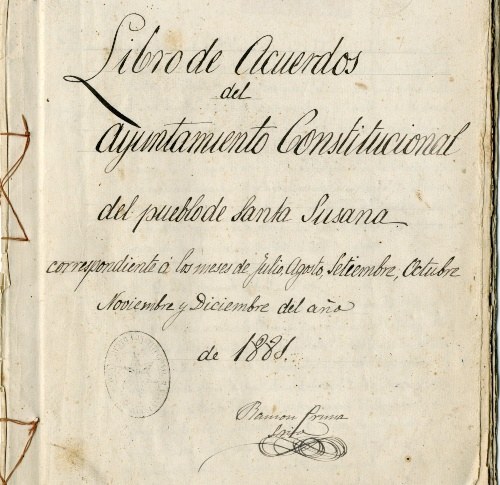 Libro de Acuerdos
del
Ayuntamiento Constitucional
del pueblo de Santa Susana
correspondiente á los meses de Julio, Agosto, Setiembre, Octubre
Noviembre y Diciembre del año
de 1881.
Ramon